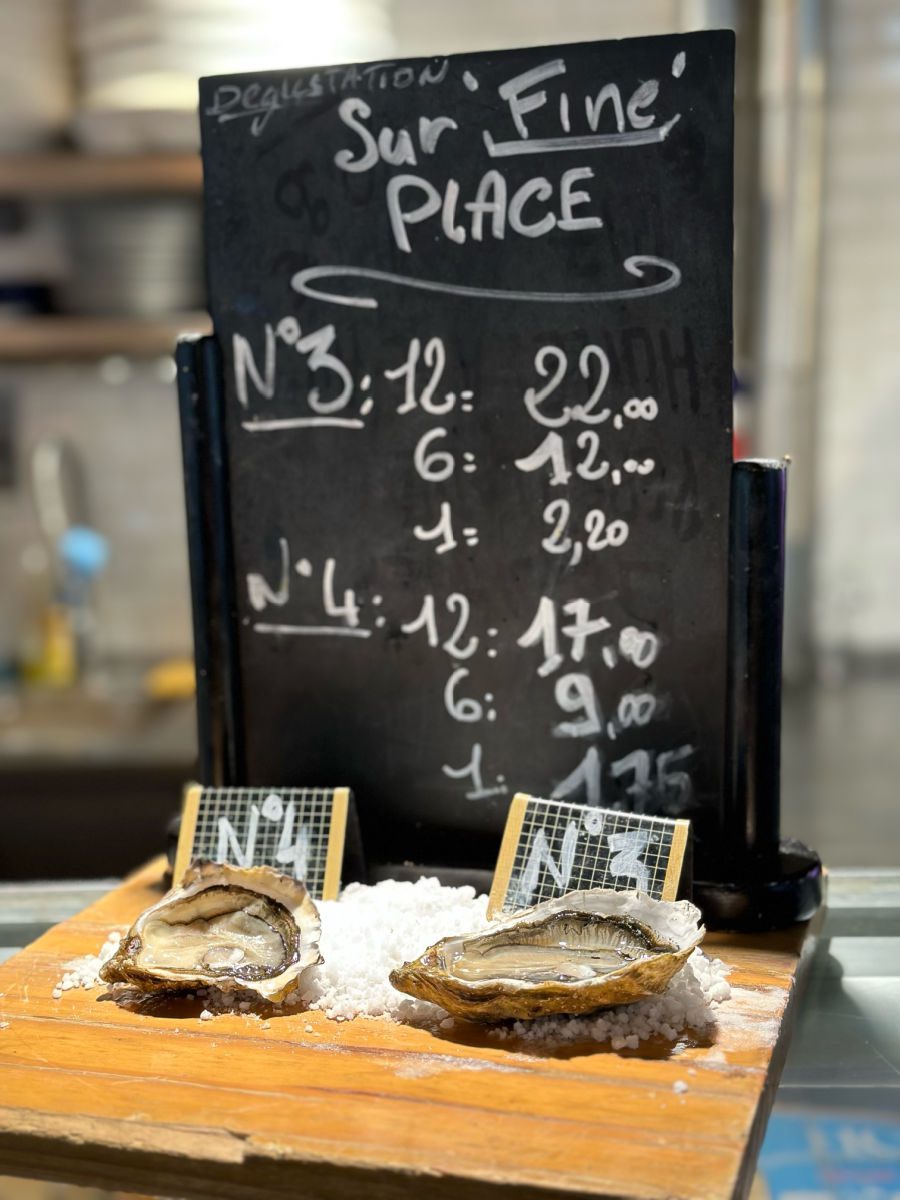 DegustATION
Sur 'Fine'
PLACE
N°3: 12= 22,00
6= 12,00
1= 2,20
N°4: 12: 17,00
6: 9,00
1: 1,75
N°4
N°3